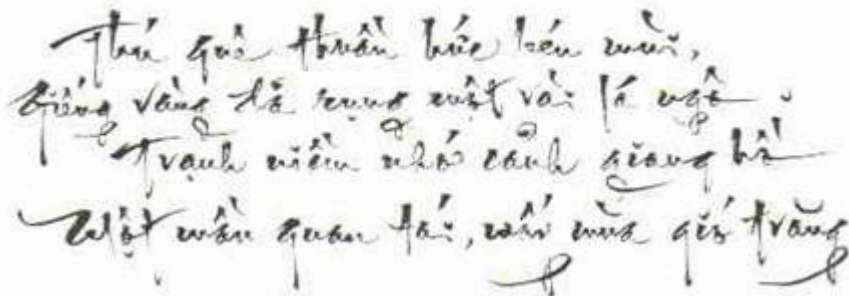 Thú quê thuần hức bén mùi,
Giếng vàng đã rụng một vài lá ngô.
Trạnh niềm nhớ cảnh giang hồ
Một màn quan tái, mấy mùa gió trăng